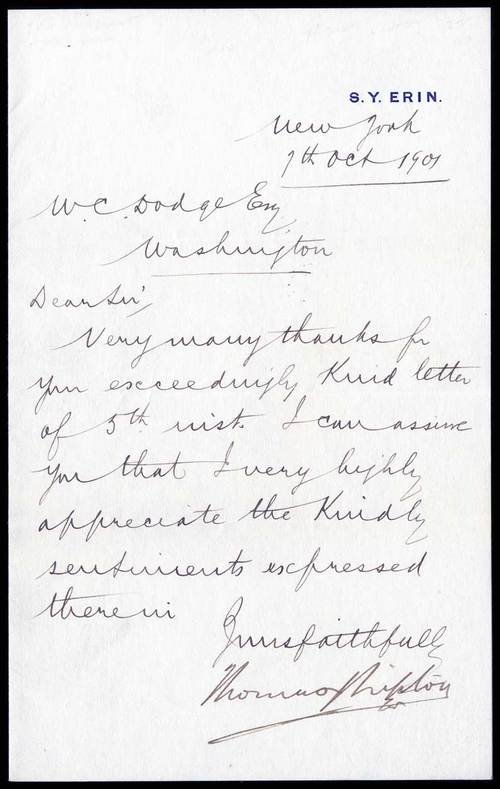 S.Y. ERIN.
New York
7th Oct 1901
W. C. Dodge Esq
Washington
Dear Sir,
Very many thanks for
your exceedingly Kind letter
of 5th inst. I can assure
you that I very highly
appreciate the Kindly
sentiments expressed
therein
Yours faithfully
Thomas Lipton